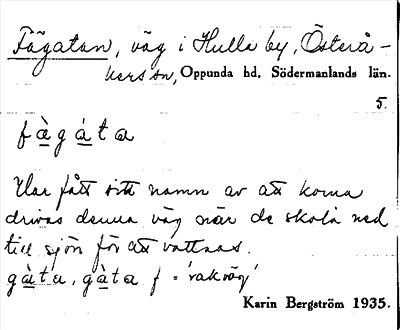 Fägatan, väg i Hulla by, Österå-
kers sn, Oppunda hd, Södermanlands län.
5.
fàgáta
Har fått sitt namn av att korna
drivas denna väg när de skola ned
till sjön för att vattnas.
gàta, gàta f = 'rakväg'
Karin Bergström 1935.